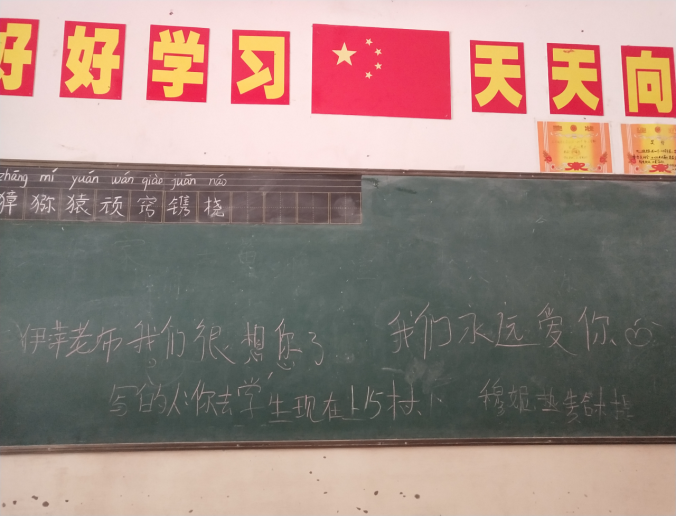 好好学习 天天向
zhāng mí yuán wán qiào juān náo
獐 猕 猿 顽 窍 镌 桡
伊萍老师我们很想您了 我们永远爱你
写的人:你去学生现在上15村